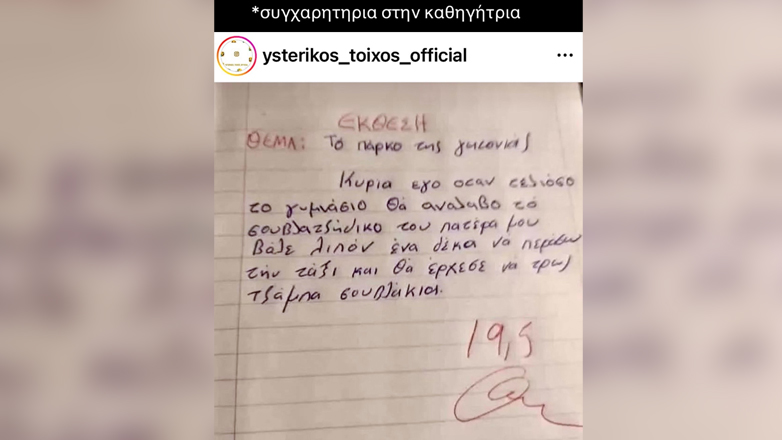 *συγχαρητηρια στην καθηγήτρια
ysterikos_toixos_official
ΕΚΘΕΣΗ
ΘΕΜΑ: Το παρκο της γιτονιάς
Κυρια εγο οταν τελιόσο
το γυμνάσιο θα αναλαβο τό
σουβλατζήδικο του πατέρα μου
βάλε λιπόν ένα δέκα να περάσω
την τάξι και θα έρχεσε να τρως
τζάμπα σουβλάκια.
19,5